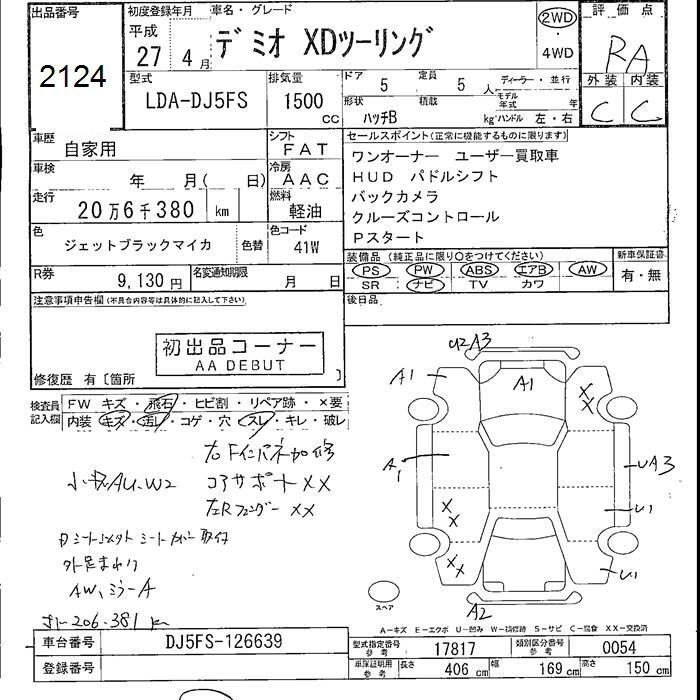 出品番号
2124
初度登録年月
平成
27 4月
車名・グレード
デミオ XDツーリング
2WD
・
4WD
評価点
RA
外装 内装
C C
型式
LDA-DJ5FS
排気量
1500 cc
ドア 5 定員 5 人
形状 ハッチB 積載 kg
ディーラー・並行
モデル年式 年
ハンドル 左・右
車歴
自家用
シフト
FAT
車検
年 月( 日)
冷房
AAC
走行
20万6千380 km
燃料
軽油
色
ジェットブラックマイカ
色替
色コード
41W
R券
9,130円
名変通知期限
月 日
セールスポイント(正常に機能するものに限ります)
ワンオーナー ユーザー買取車
HUD パドルシフト
バックカメラ
クルーズコントロール
Pスタート
装備品(純正品に限り○をつけてください)
PS PW ABS エアB AW
SR ナビ TV カワ
新車保証書
有・無
後日品
注意事項申告欄(不具合内容等は具体的に記入して下さい)
初出品コーナー
AA DEBUT
修復歴 有〔箇所 〕
検査員
記入欄
FW キズ・飛石・ヒビ割・リペア跡・×要
内装 キズ・汚レ・コゲ・穴・スレ・キレ・破レ
右Fインパネ加修
小キズAU、W2 コアサポートXX
左RフェンダーXX
外足まわり
AW、ミラーA
206.381 km
U2A3
A1
A1
XX
A1
UA3
XX
U1
XX
U1
A2
スペア
A−キズ E−エクボ U−凹み W−補修跡 S−サビ C−腐食 XX−交換済
車台番号
DJ5FS-126639
登録番号
型式指定番号
参考
17817
類別区分番号
参考
0054
車庫証明用
参考
長さ 406 cm 幅 169 cm 高さ 150 cm